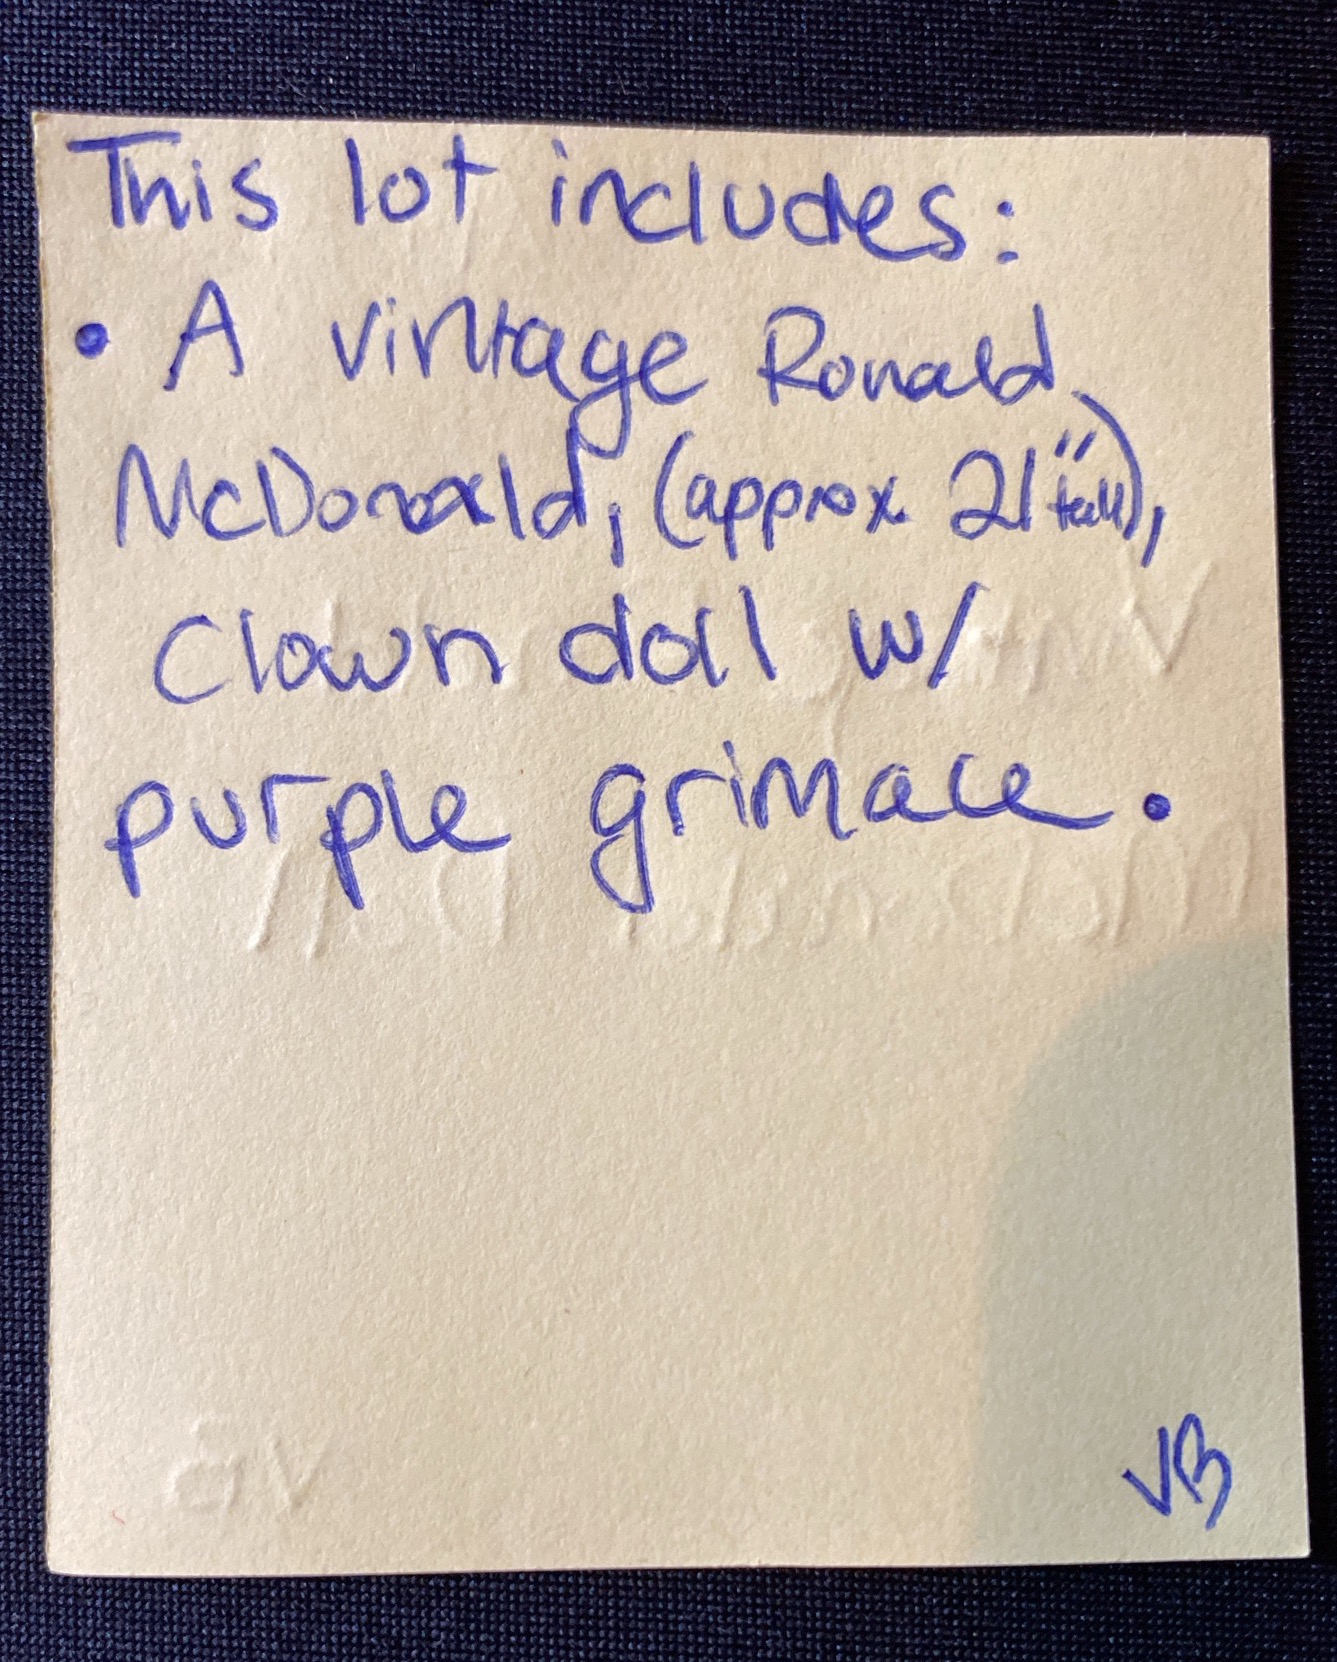 This lot includes:
• A vintage Ronald
McDonald, (approx. 21" tall),
clown doll w/
purple grimace.
VB